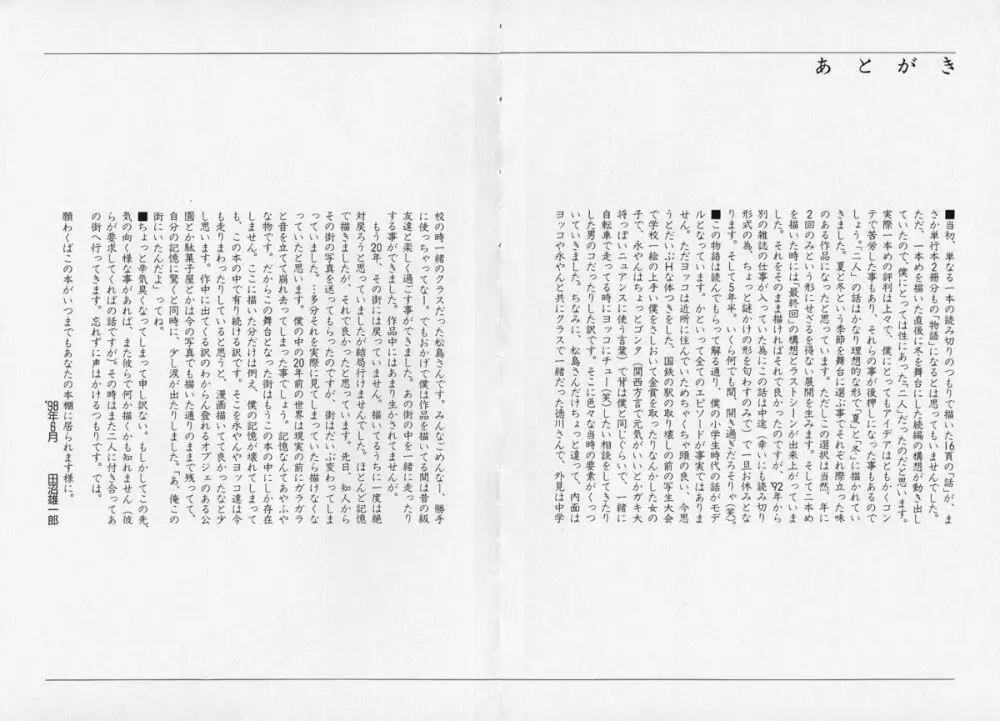 あとがき
■当初、単なる一本の読み切りのつもりで描いた16頁の「話」が、ま
さか単行本2冊分もの「物語」になるとは思ってもいませんでした。
ただ、一本めを描いた直後に冬を舞台にした続編の構想が動き出し
ていたので、僕にとっては性にあった「二人」だったのだと思います。
実際一本めの評判は上々で、僕にとってもアイデアはともかくコン
テで苦労した事もあり、それらの事が後押しになった事もあるので
しょう。「二人」の話はかなり理想的な形で、「夏」と「冬」に描かれてい
きました。夏と冬という季節を舞台に選ぶ事でそれぞれ際立った味
のある作品になったと思っています。ただしこの選択は当然、年に
2回のみという形にせざるを得ない展開を生みます。そして二本め
を描いた時には「最終回」の構想とラストシーンが出来上がっていま
した。それをそのまま描ければそれで良かったのですが、'92年から
別の雑誌の仕事が入っていた為にこの話は中途(幸いにも読み切り
形式の為、ちょっと謎かけの形を匂わすのみで)で一旦お休みとな
ります。そして5年半。いくら何でも間、開き過ぎだろそりゃ(笑)。
■この物語は読んでもらって解る通り、僕の小学生時代の話がモデ
ルとなっています。かといって全てのエピソードが事実ではありま
せん。ただヨッコは近所に住んでいためちゃくちゃ頭の良い、今思
うとだいぶHな体つきをした、国鉄の駅の取り壊しの前の写生大会
で学校一絵の上手い僕をさしおいて金賞を取ったりなんかした女の
子で、永やんはちょっとゴンタ(関西方言で元気がいいとかガキ大
将っぽいニュアンスに使う言葉)で背は僕と同じぐらいで、一緒に
自転車で走ってる時にヨッコにチュー(笑)したい相談をしてきたり
した男のコだったりした訳です。そこに色々な当時の要素がくっつ
いていきました。ちなみに、松島さんだけちょっと違って、内面は
ヨッコや永やんと共にクラスで一緒だった徳川さんで、外見は中学
校の時一緒のクラスだった松島さんです。みんなごめんなー、勝手
に使っちゃってなー。でもおかげで僕は作品を描いてる間は昔の級
友達と楽しく過ごす事ができました。あの街の中を一緒に走ったり
する事ができました。作品中にはあまり生かされてませんが。
もう20年、その街には戻っていません。描いてるうちに一度は絶
対戻ろうと思っていましたが結局行けませんでした。ほとんど記憶
で描きましたが、それで良かったと思っています。先日、知人から
その街の写真を送ってもらったのですが、街はだいぶ変わってしま
っていました。…多分それを実際に見てしまっていたら描けなくな
っていたと思います。僕の中の20年前の世界は現実の前にガラガラ
と音を立てて崩れ去ってしまった事でしょう。記憶なんてあやふや
な物です。だからこの舞台となった街はもうこの本の中にしか存在
しません。ここに描いた分だけは例え、僕の記憶が壊れてしまって
も、この本の中で有り続ける訳です。そこを永やんやヨッコ達は今
も走りまわったりしていると思うと、漫画描いてて良かったなと少
し思います。作中に出てくる訳のわからん登れるオブジェのある公
園とか駄菓子屋とかは今の写真でも描いた通りのままで残ってて、
自分の記憶に驚くと同時に、少し涙が出たりしました。「あ、俺この
街にいたんだよ」ってね。
■ちょっと辛気臭くなってしまって申し訳ない。もしかしてこの先、
気の向く様な事があれば、また彼らで何か描くかも知れません(彼
らが要求してくればの話ですが)。その時はまた二人に付き合ってあ
の街へ行ってきます。忘れずに声はかけるつもりです。では。
願わくばこの本がいつまでもあなたの本棚に居られます様に。
'98年6月　田沼雄一郎